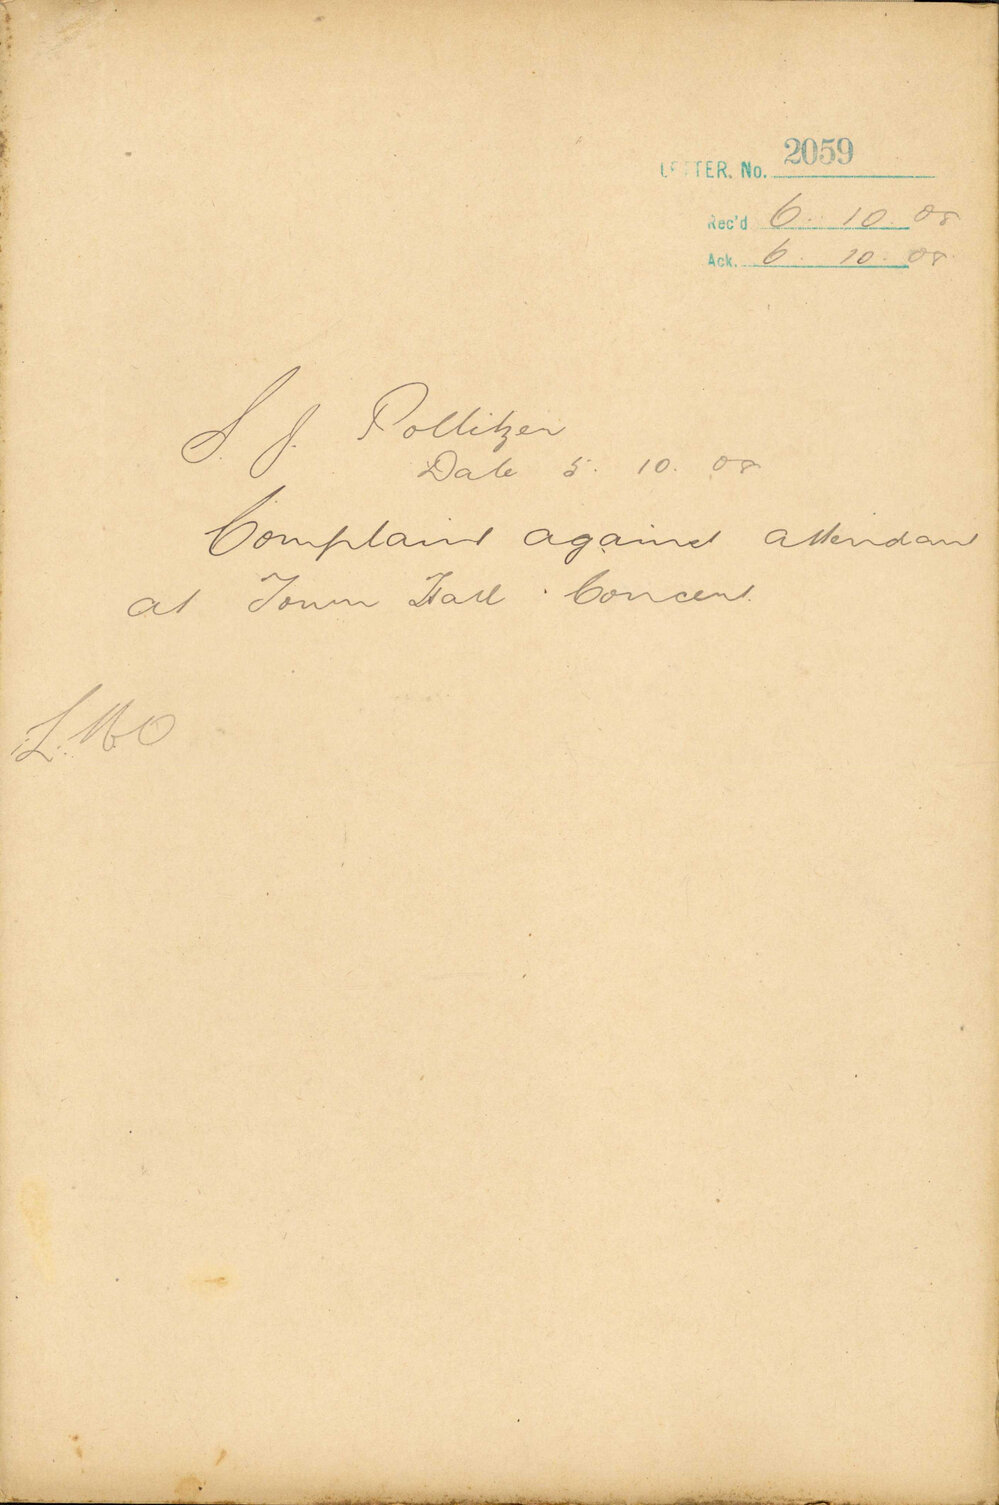 LETTER. No. 2059
Rec'd 6. 10. 08
Ack. 6. 10. 08
S. J. Pollitzer
Date 5. 10. 08
Complaint against attendant
at Town Hall Concert.